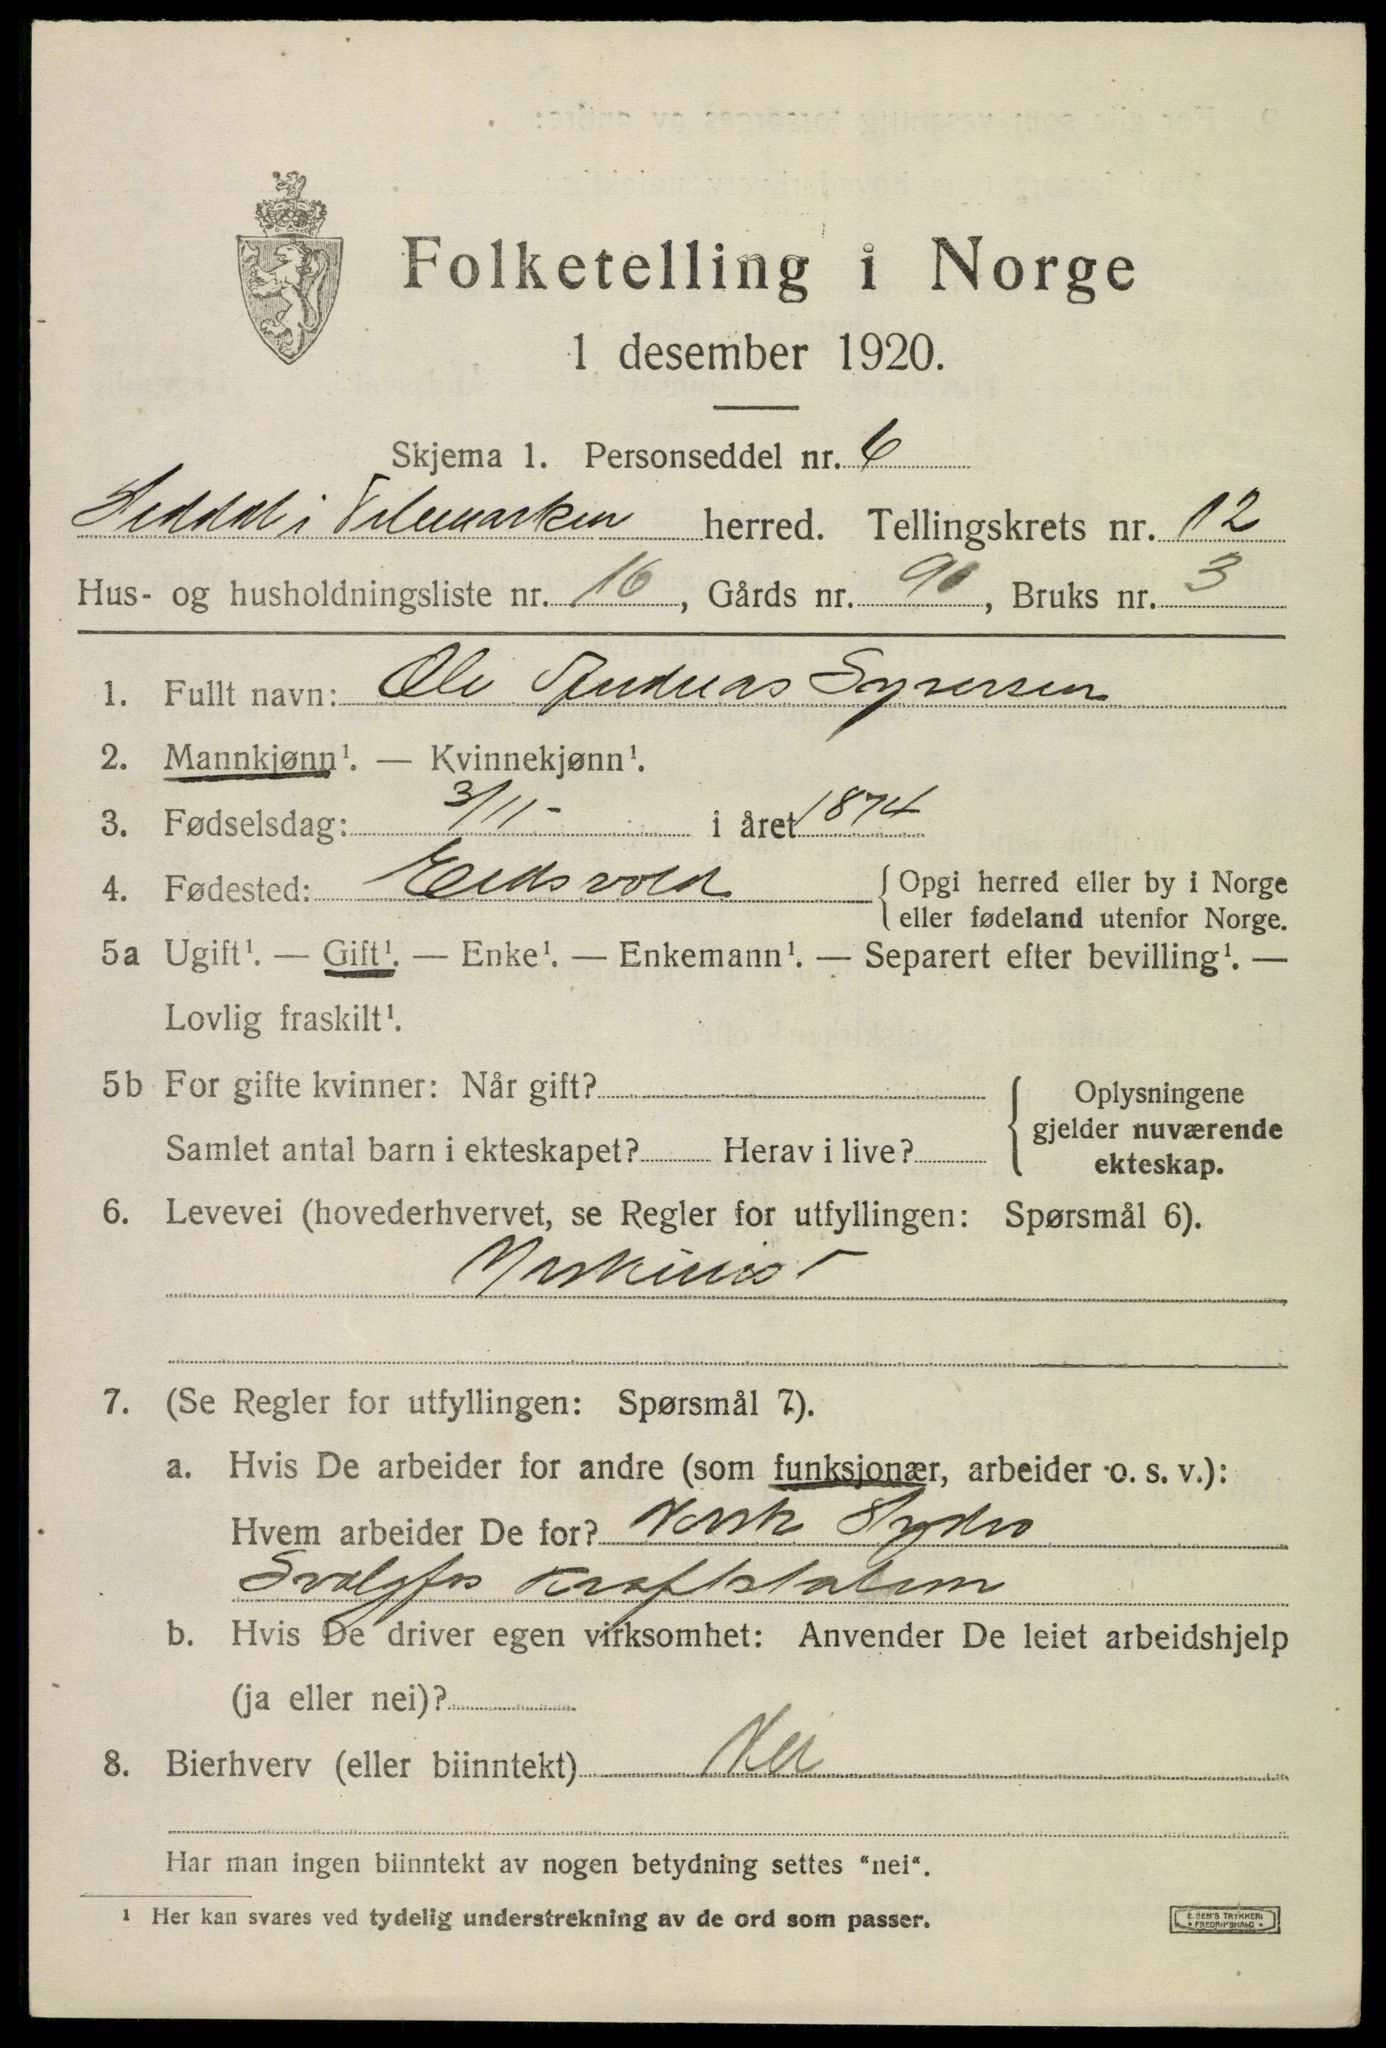 Folketelling i Norge
1 desember 1920.
Skjema 1. Personseddel nr. 6
Heddal i Telemarken herred. Tellingskrets nr. 12
Hus- og husholdningsliste nr. 16, Gårds nr. 90, Bruks nr. 3
1. Fullt navn: Ole Andreas Syversen
2. Mannkjønn¹. — Kvinnekjønn¹.
3. Fødselsdag: 3/11- i året 1874
4. Fødested: Eidsvold { Opgi herred eller by i Norge
eller fødeland utenfor Norge.
5a Ugift¹. — Gift¹. — Enke¹. — Enkemann¹. — Separert efter bevilling¹. —
Lovlig fraskilt¹.
5b For gifte kvinner: Når gift?
Samlet antal barn i ekteskapet? Herav i live?
Oplysningene
gjelder nuværende
ekteskap.
6. Levevei (hovederhvervet, se Regler for utfyllingen: Spørsmål 6).
Maskinist
7. (Se Regler for utfyllingen: Spørsmål 7).
a. Hvis De arbeider for andre (som funksjonær, arbeider o. s. v.):
Hvem arbeider De for? Norsk Hydro
Svælgfos Kraftstation
b. Hvis De driver egen virksomhet: Anvender De leiet arbeidshjelp
(ja eller nei)?
8. Bierhverv (eller biinntekt) Nei
Har man ingen biinntekt av nogen betydning settes "nei".
¹ Her kan svares ved tydelig understrekning av de ord som passer.
E. SEM'S TRYKKERI
FREDRIKSHALD